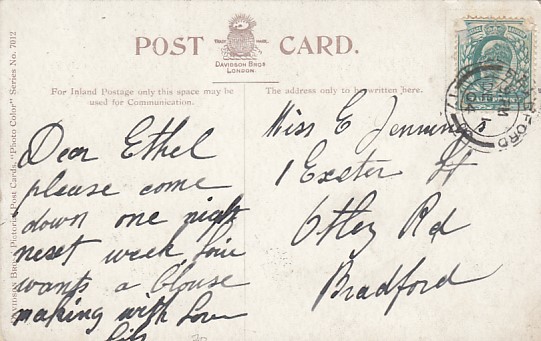 POST CARD.
TRADE MARK
DAVIDSON BROS
LONDON.
For Inland Postage only this space may be
used for Communication.
The address only to be written here.
Davidson Bros' Pictorial Post Cards. "Photo Color" Series No. 7012
Dear Ethel
please come
down one night
next week
wants a blouse
making with Love
Miss E Jennings
1 Exeter St
Otley Rd
Bradford